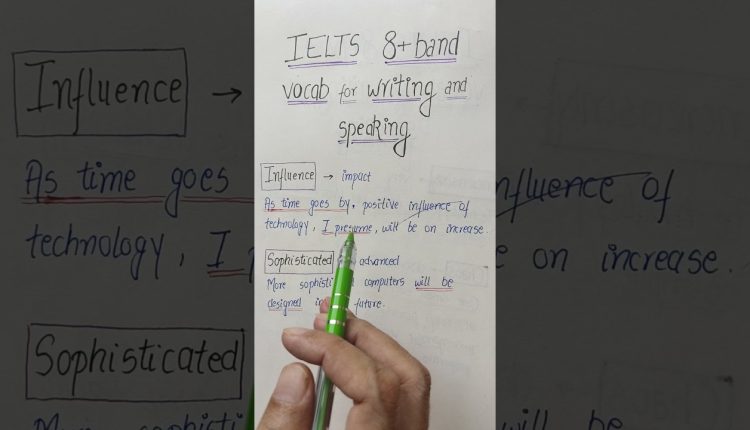 Influence →
As time goes
technology, I
Sophisticated
IELTS 8+ band
vocab for writing and
speaking
Influence → impact
As time goes by, positive influence of
technology, I presume, will be on increase.
Sophisticated advanced
More computers will be
designed in future.
nfluence of
e on increase.
will be